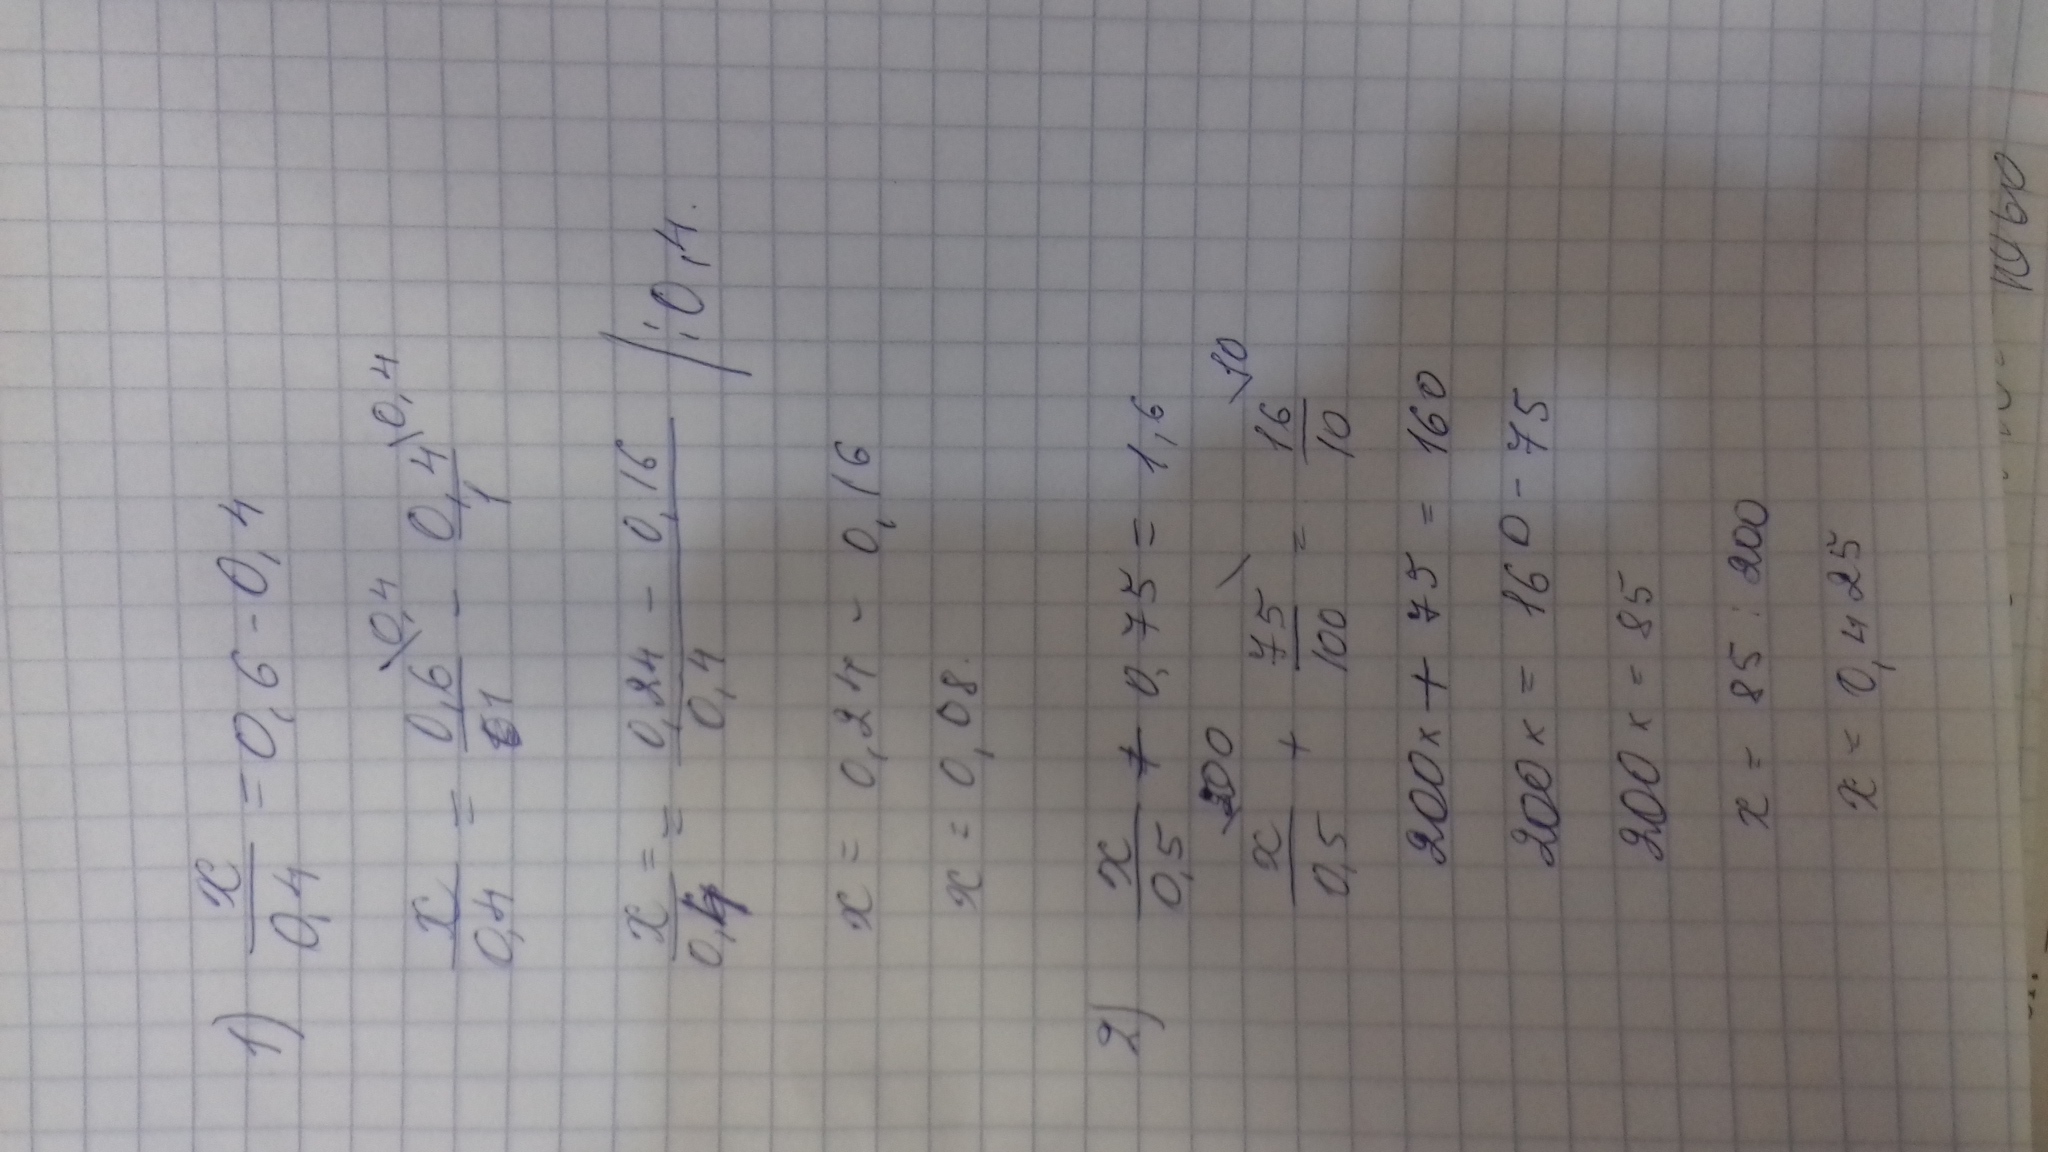 1) x/0,4 = 0,6 - 0,4
x/0,4 = 0,6\0,4/1 - 0,4\0,4/1
x/0,4 = = 0,24 - 0,16/0,4 /:0,4.
x = 0,24 - 0,16
x = 0,08.
2) x/0,5 + 0,75 = 1,6
x\200/0,5 + 75\/100 = 16\10/10
200x + 75 = 160
200x = 160 - 75
200x = 85
x = 85 : 200
x = 0,425